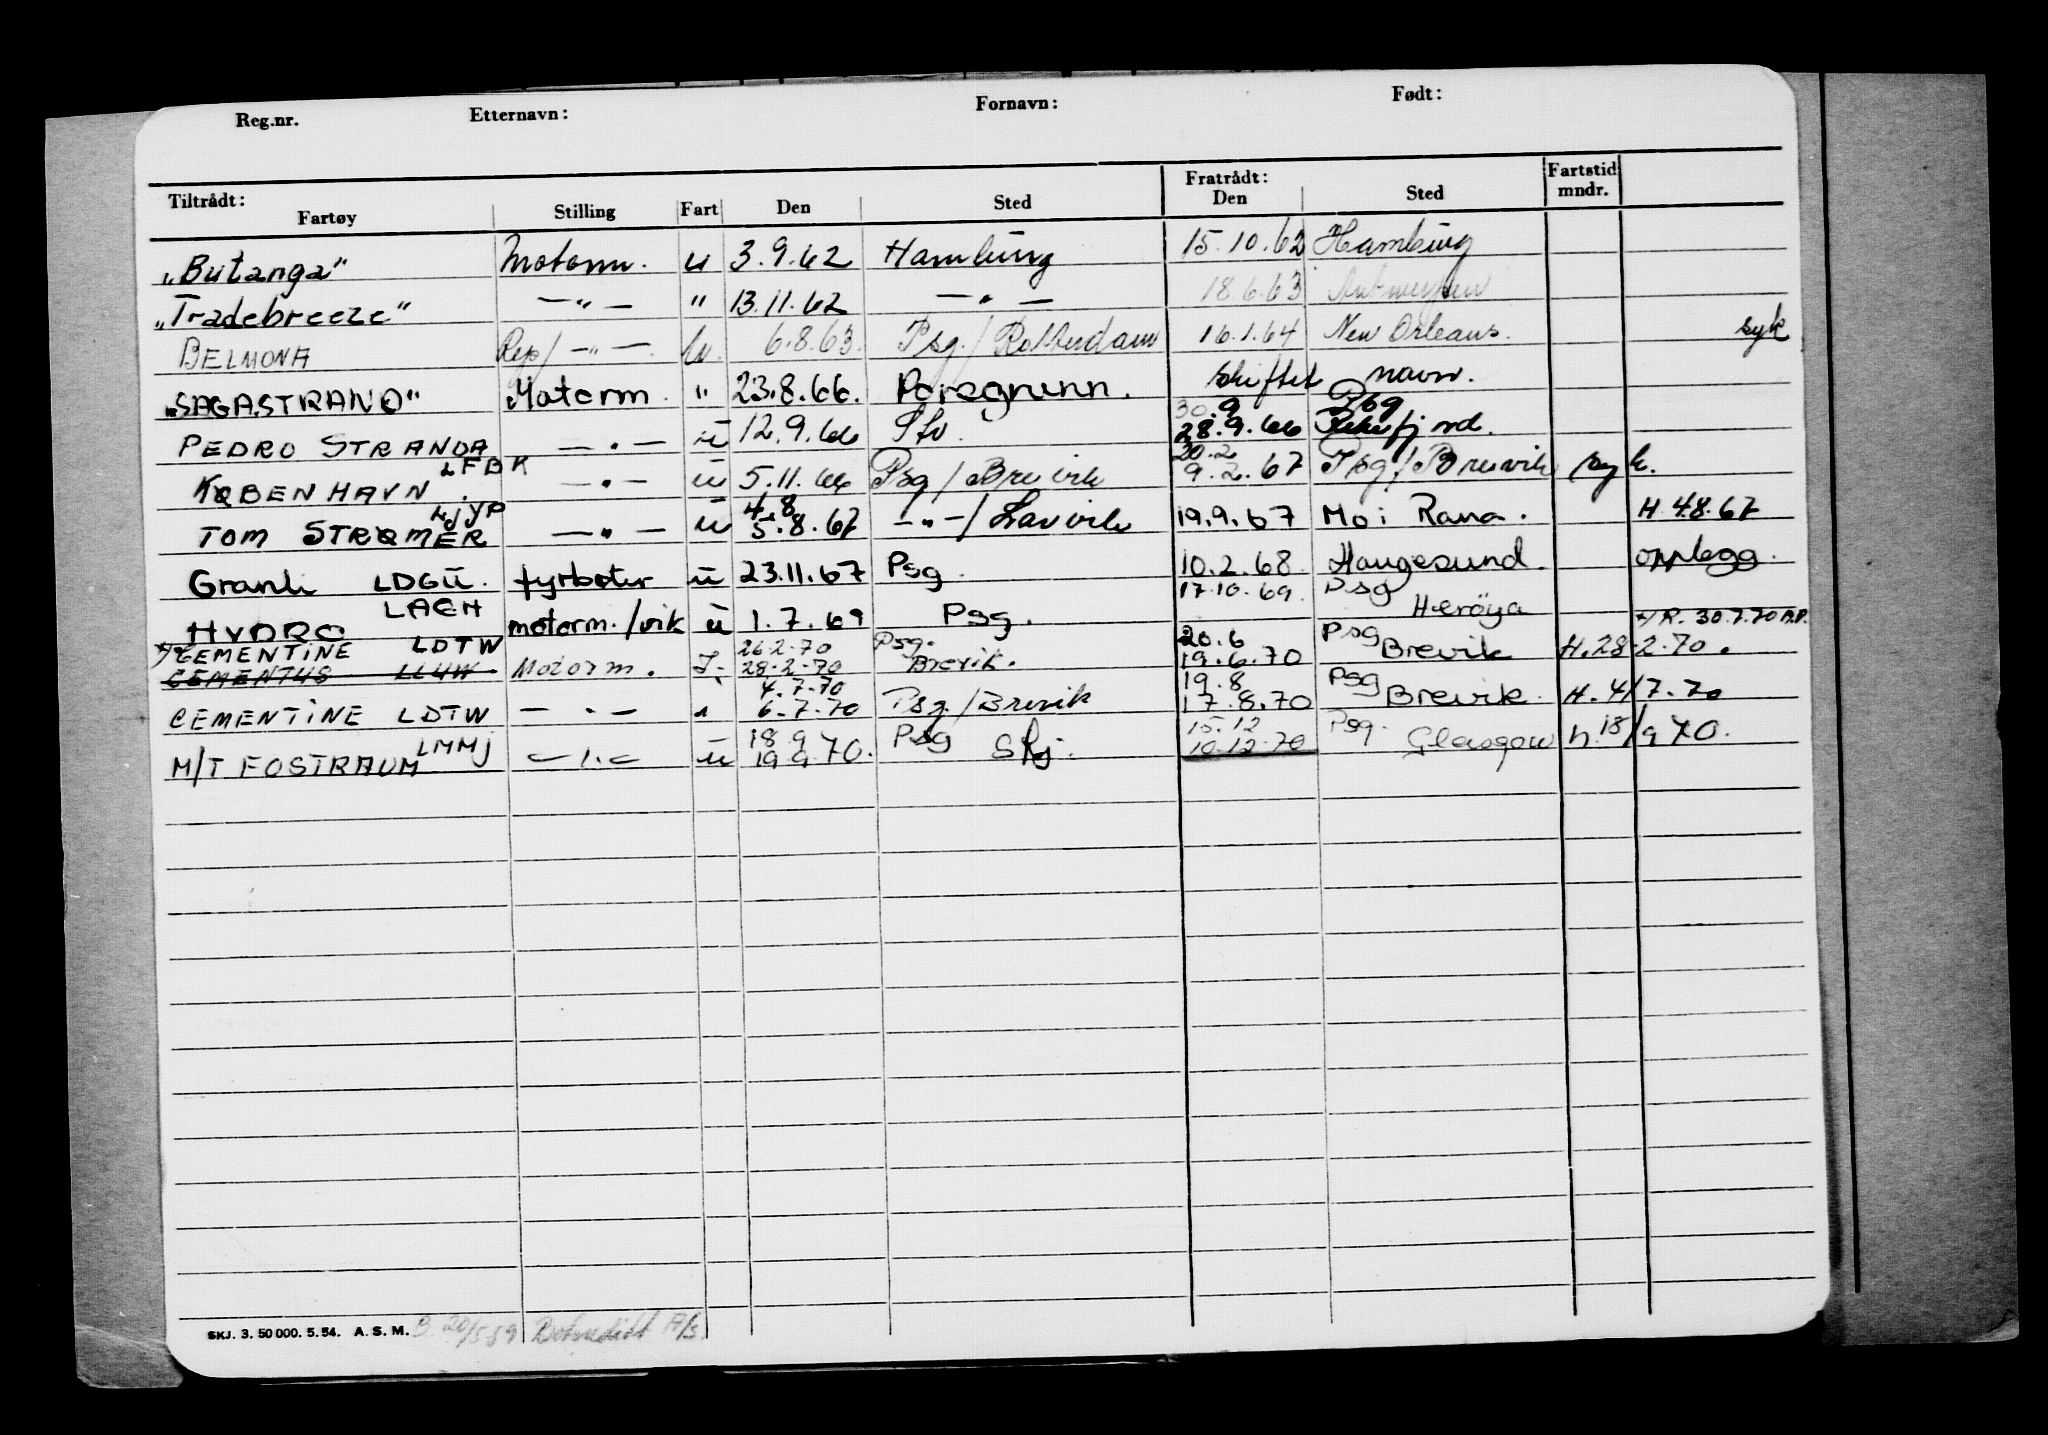 Reg.nr. Etternavn: Fornavn: Født:
Tiltrådt: Fratrådt: Fartstid
Fartøy Stilling Fart Den Sted Den Sted mndr.
„Butanga" Motorm. u 3.9.62 Hamburg 15.10.62 Hamburg
„Tradebreeze" —"— " 13.11.62 —"— 18.6.63 Antwerpen
BELMONA Rep/ —"— 6.8.63. Psg./Rotterdam 16.1.64 New Orleans. syk
„SAGASTRAND" Motorm. " 23.8.66. Porsgrunn. skiftet navn.
30.9 Psg
PEDRO STRANDA —"— ū 12.9.66 28.9.66
LFBK 20.2
KØBENHAVN. —"— ū 5.11.66 Psg/Brevik 9.2.67 Psg/Brevik syk.
LJYP 4.8
TOM STRØMER —"— ū 5.8.67 —"—/Larvik 19.9.67 Mo i Rana. H 4.8.67
Granli LDGU. fyrbøter ū 23.11.67 Psg. 10.2.68. Haugesund. opplegg.
LAEH 17.10.69. Psg
HYDRO motorm./vik ū 1.7.69 Psg. Herøya
x) R. 30.7.70 A.P.
x) CEMENTINE LDTW 26.2.70 Psg. 20.6 Psg
CEMENTUS LLUW Motorm. I. 28.2.70 Brevik. 19.6.70 Brevik H. 28.2.70.
4.7.70 19.8 Psg
CEMENTINE LDTW —"— 6.7.70 Psg./Brevik 17.8.70 Brevik. H. 4/7.70
LMMJ 18.9 Psg 15.12 Psg.
M/T FOSTRAUM —"— ū 19.9.70. Skj. 10.12.70 Glasgow h. 18/9 70.
SKJ. 3. 50 000. 5. 54. A. S. M. B. 20/5 59